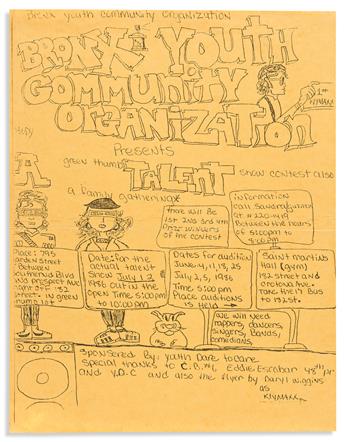 Bronx youth community Organization
BRONX YOUTH
COMMUNITY
ORGANIZATION
1st
Presents
A green thumb TALENT show contest also
a family gathering
There will Be
1st 2nd 3rd 4th
Prize winners
of the contest
information
call Sandra
at
Between the hours
of 5:00pm to
8:00pm
Place: 795
Garden street
Between
Southern Blvd
and prospect Ave
182
street. in green
Date: for the
actual talent
Show July 12
1986 out in the
Open Time 5:00pm
to 10:00pm
Dates for audition
June 4, 11, 18, 25
July 2, 5, 1986
Time 5:00pm
Place auditions
is Held →
Saint martins
Hall (gym)
182 street and
crotona Ave.
take the 17 Bus
to 182 st.
we will need
rappers, dancers,
singers, Bands,
comedians,
Sponsered By: youth Dare to care
Special thanks to C.B. #6, Eddie Escobar 48th Pr.
and Y.D.C and also the flyer by Daryl Wiggins
as